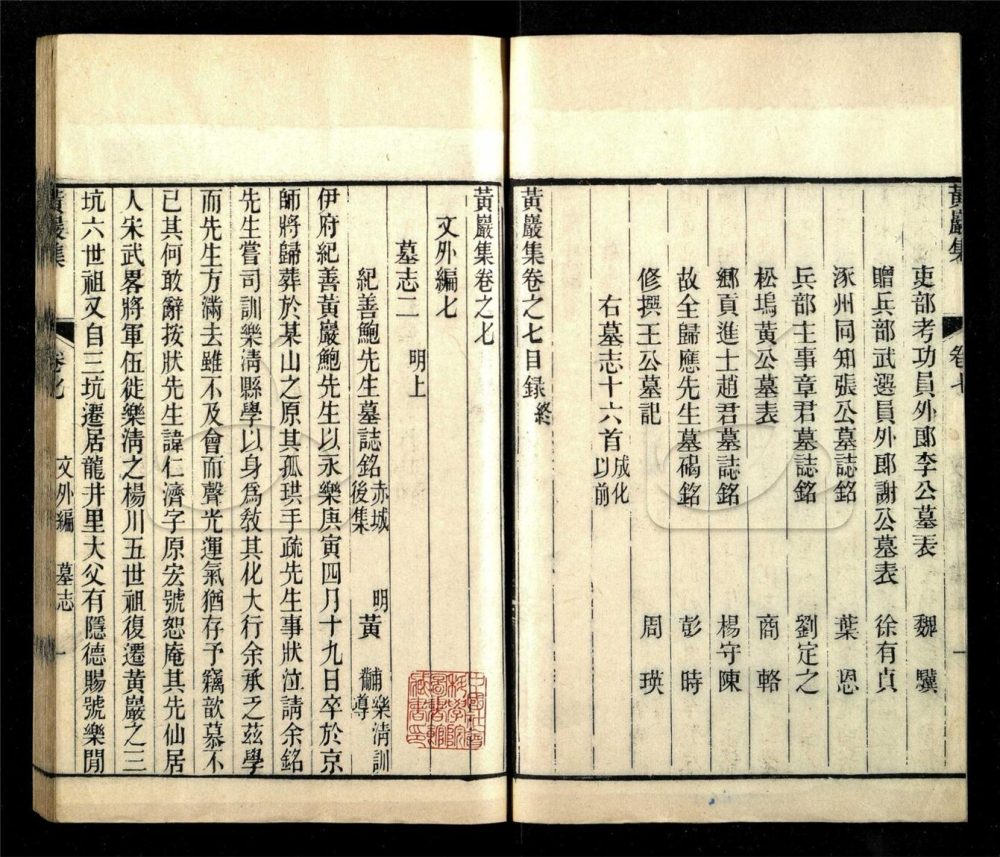 黃巖集 卷七 一
吏部考功員外郎李公墓表 魏驥
贈兵部武選員外郎謝公墓表 徐有貞
涿州同知張公墓誌銘 葉恩
兵部主事章君墓誌銘 劉定之
松塢黃公墓表 商輅
鄉貢進士趙君墓誌銘 楊守陳
故全歸應先生墓碣銘 彭時
修撰王公墓記 周瑛
右墓志十六首成化以前
黃巖集卷之七目録終
黃巖集卷之七
文外編七
墓志二 明上
紀善鮑先生墓誌銘赤城後集 明黃 樂清訓導
伊府紀善黃巖鮑先生以永樂庚寅四月十九日卒於京
師將歸葬於某山之原其孤珙手疏先生事狀泣請余銘
先生嘗司訓樂清縣學以身爲敎其化大行余承乏茲學
而先生方滿去雖不及會而聲光運氣猶存予竊歆慕不
已其何敢辭按狀先生諱仁濟字原宏號恕庵其先仙居
人宋武畧將軍伍徙樂清之楊川五世祖復遷黃巖之三
坑六世祖又自三坑遷居龍井里大父有隱德賜號樂閒
黃巖集 卷七 文外編 墓志 一